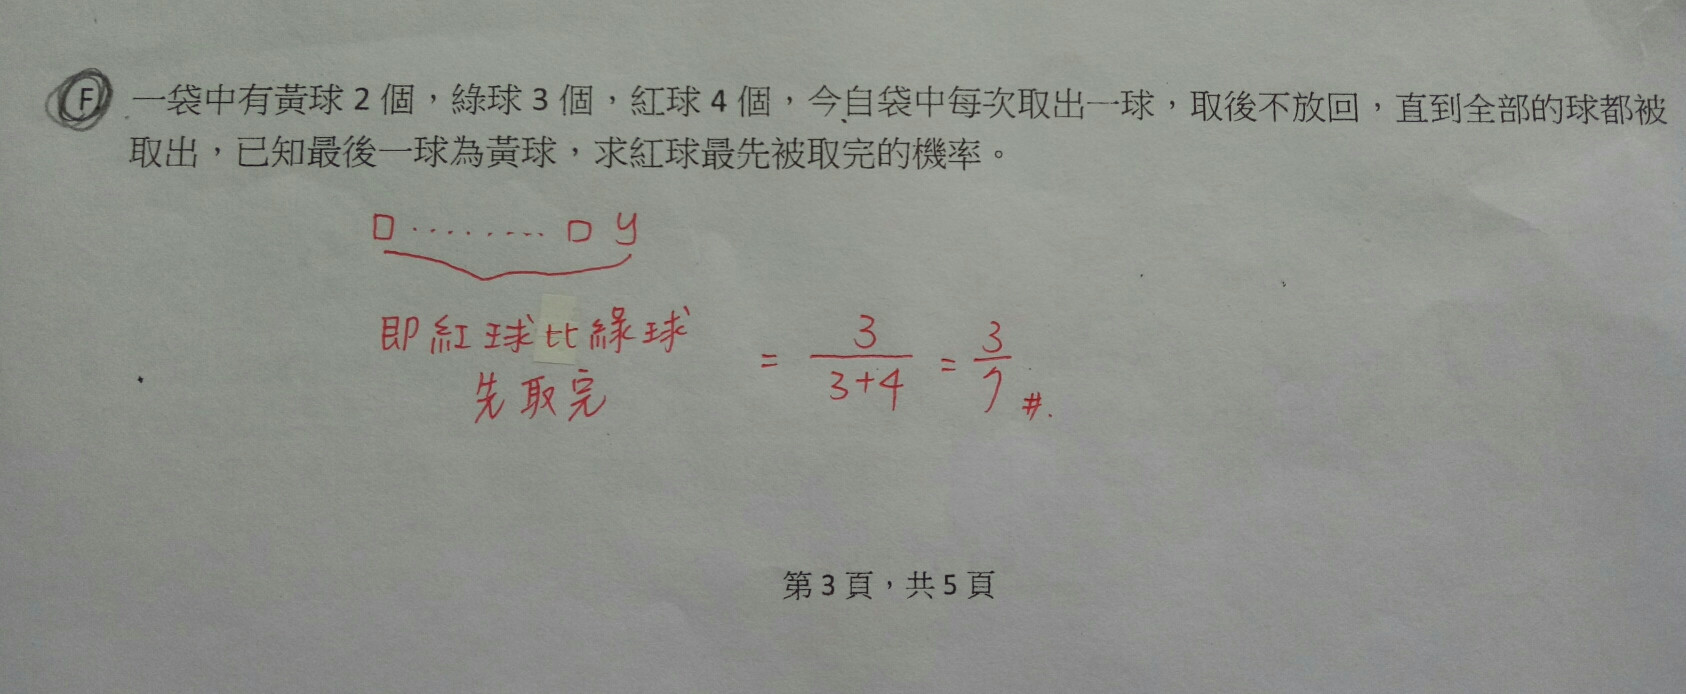 F 一袋中有黃球 2 個，綠球 3 個，紅球 4 個，今自袋中每次取出一球，取後不放回，直到全部的球都被
取出，已知最後一球為黃球，求紅球最先被取完的機率。
□ ········ □ y
即紅球比綠球
先取完
= 3/(3+4) = 3/7 #.
第 3 頁，共 5 頁